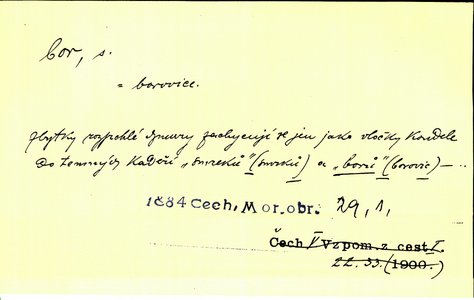 Bor, s.
= borovice.
zbytky rozprchlé chmury zachycují se jen jako vločky koudele
do temných kadeří „smrekù" (smrků) a „borů" (borovic) — ..
1884 Čech, Mor. obr. 29, 1,
Čech. V Vzpom. z cest I.
22. 33. (1900.)